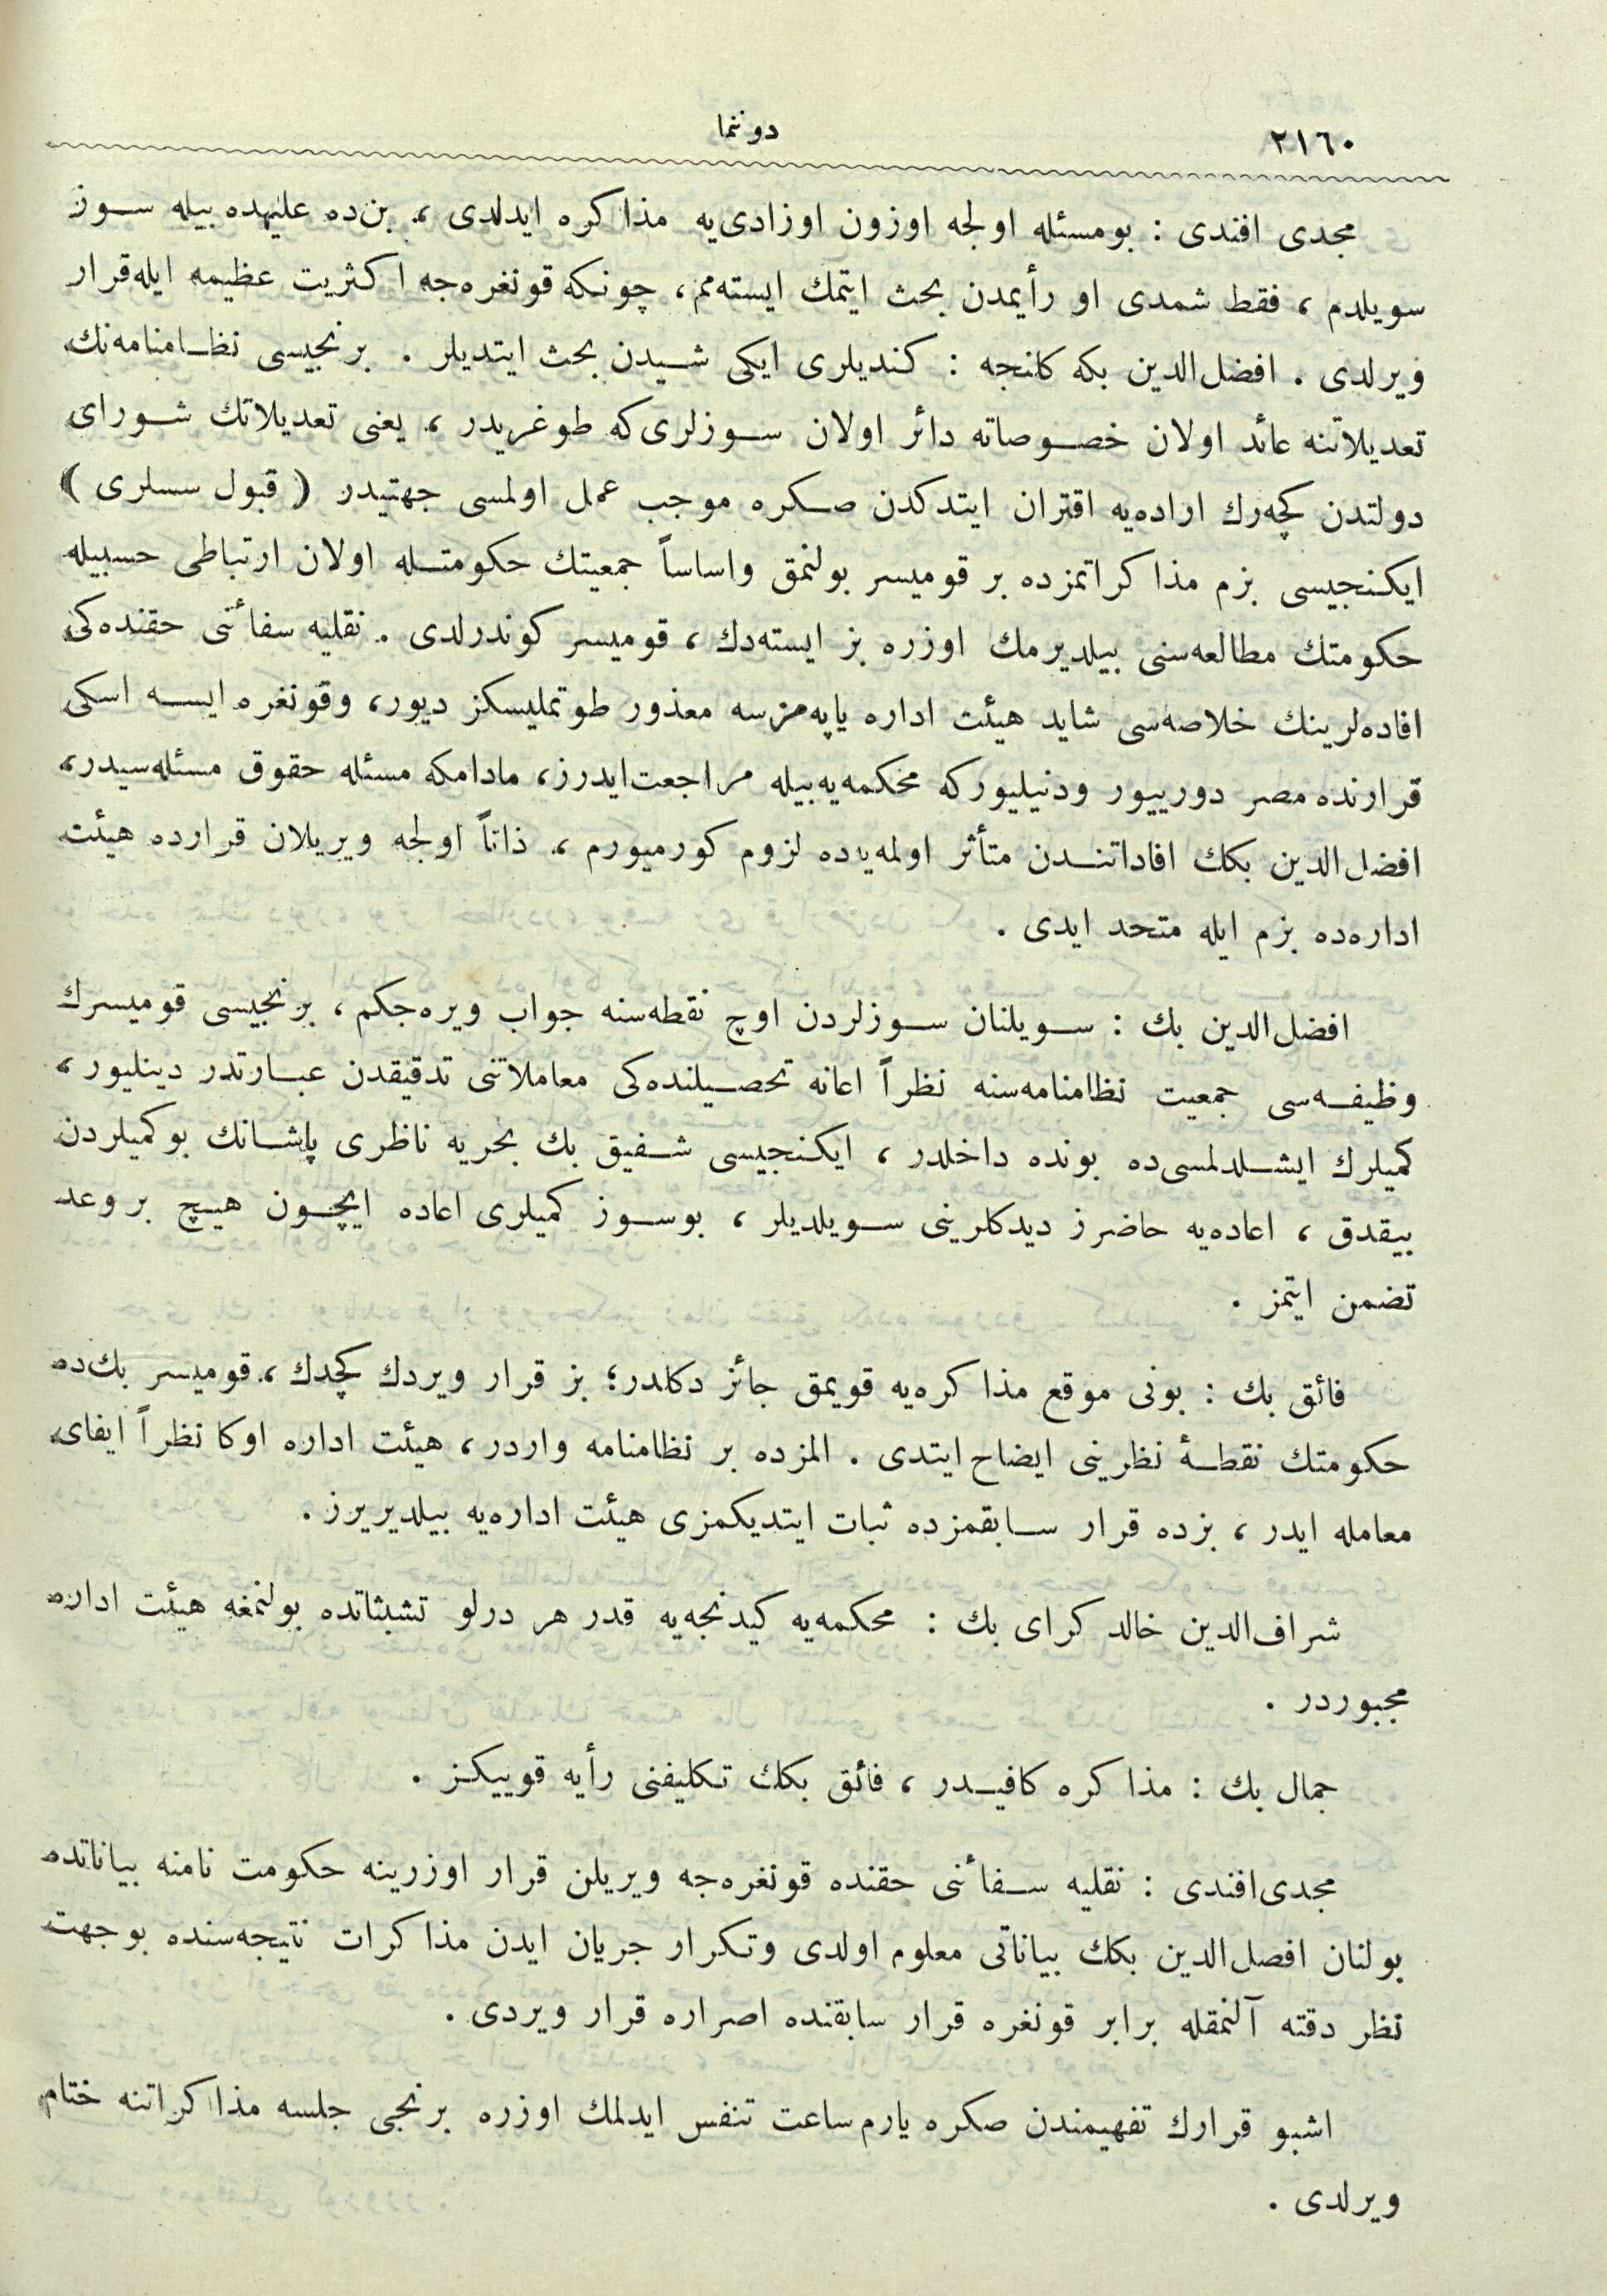 ٢١٦٠
دوننما
مجدی افندی : بومسئله اولجه اوزون اوزادی‌یه مذاکره ایدلدی ، بن‌ده علیهده بیله سوز
سویلدم ، فقط شمدی او رأیمدن بحث ایتمك ایسته‌مم ، چونکه قونغره‌جه اکثریت عظیمه ایله‌قرار
ویرلدی . افضل‌الدین بکه کانجه : کندیلری ایکی شیدن بحث ایتدیلر . برنجیسی نظامنامه‌نك
تعدیلاتنه عائد اولان خصوصاته دائر اولان سوزلری‌که طوغریدر ، یعنی تعدیلاتك شورای
دولتدن کچه‌رك اراده‌یه اقتران ایتدکدن صکره موجب عمل اولمسی جهتیدر ( قبول سسلری )
ایکنجیسی بزم مذاکراتمزده بر قومیسر بولنمق واساساً جمعیتك حکومتله اولان ارتباطی حسبیله
حکومتك مطالعه‌سنی بیلدیرمك اوزره بز ایسته‌دك ، قومیسر کوندرلدی . نقلیه سفائنی حقنده‌کی
افاده‌لرینك خلاصه‌سی شاید هیئت اداره یاپه‌مزسه معذور طوتملیسکز دیور، وقونغره ایسه اسکی
قرارنده مصر دورییور ودنیلیورکه محکمه‌یه بیله مراجعت‌ایدرز، مادامکه مسئله حقوق مسئله‌سیدر،
افضل‌الدین بکك افاداتندن متأثر اولمه‌یه‌ده لزوم کورمیورم ، ذاتاً اولجه ویریلان قرارده هیئت
اداره‌ده بزم ایله متحد ایدی .
افضل‌الدین بك : سویلنان سوزلردن اوچ نقطه‌سنه جواب ویره‌جکم ، برنجیسی قومیسرك
وظیفه‌سی جمعیت نظامنامه‌سنه نظراً اعانه تحصیلنده‌کی معاملاتنی تدقیقدن عبارتدر دینلیور ،
کمیلرك ایشلدلمسی‌ده بونده داخلدر ، ایکنجیسی شفیق بك بحریه ناظری پاشانك بوکمیلردن
بیقدق ، اعاده‌یه حاضرز دیدکلرینی سویلدیلر ، بوسوز کمیلری اعاده ایچون هیچ بر وعد
تضمن ایتمز .
فائق بك : بونی موقع مذاکره‌یه قویمق جائز دکلدر؛ بز قرار ویردك کچدك ، قومیسر بك‌ده
حکومتك نقطهٔ نظرینی ایضاح ایتدی . المزده بر نظامنامه واردر، هیئت اداره اوکا نظراً ایفای
معامله ایدر ، بزده قرار سابقمزده ثبات ایتدیکمزی هیئت اداره‌یه بیلدیریرز .
شراف‌الدین خالد کرای بك : محکمه‌یه کیدنجه‌یه قدر هر درلو تشبثاتده بولنمغه هیئت اداره
مجبوردر .
جمال بك : مذاکره کافیدر ، فائق بکك تکلیفنی رأیه قوییکز .
مجدی‌افندی : نقلیه سفائنی حقنده قونغره‌جه ویریلن قرار اوزرینه حکومت نامنه بیاناتده
بولنان افصل‌الدین بکك بیاناتی معلوم اولدی وتکرار جریان ایدن مذاکرات نتیجه‌سنده بوجهت
نظر دقته آلنمقله برابر قونغره قرار سابقنده اصراره قرار ویردی .
اشبو قرارك تفهیمندن صکره یارم ساعت تنفس ایدلمك اوزره برنجی جلسه مذاکراتنه ختام
ویرلدی .